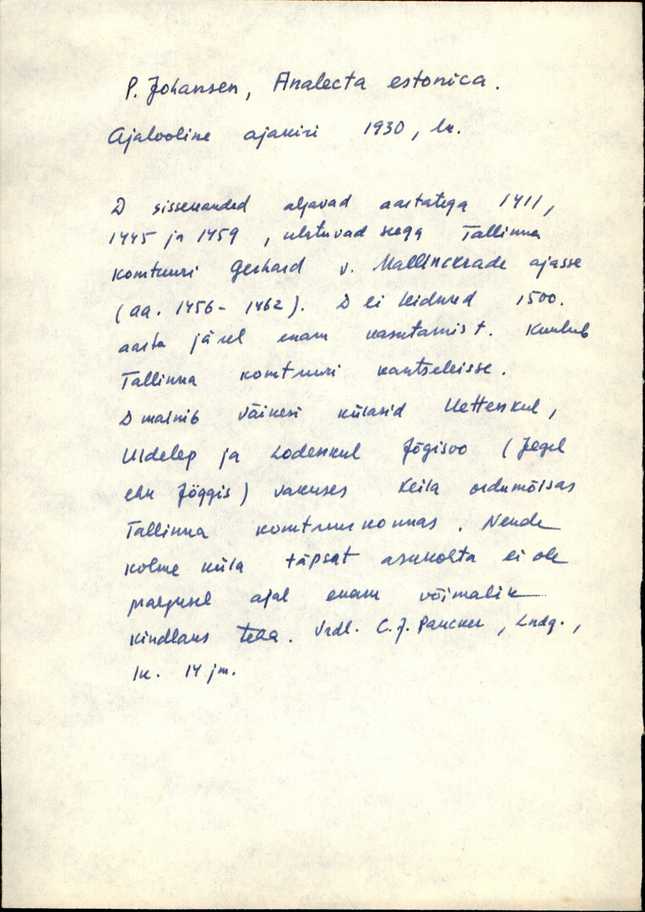 P. Johansen, Analecta estonica.
Ajalooline ajakiri 1930, lk.
D sissekanded algavad aastatega 1411,
1445 ja 1459, ulatuvad seega Tallinna
komtuuri Gerhard v. Mallinckrade ajasse
(aa. 1456-1462). D ei leidnud 1500.
aasta järel enam kasutamist. Kuulub
Tallinna komtuuri kantseleisse.
D mainib väikesi külasid Uettenkul,
Uldelep ja Lodenkul Jõgisoo (Jegel
ehk Jöggis) vakuses Keila ordumõisas
Tallinna komtuurkonnas. Nende
kolme küla täpset asukohta ei ole
praegusel ajal enam võimalik
kindlaks teha. Vrdl. C.J. Paucker, Lndg.,
lk. 14 jm.